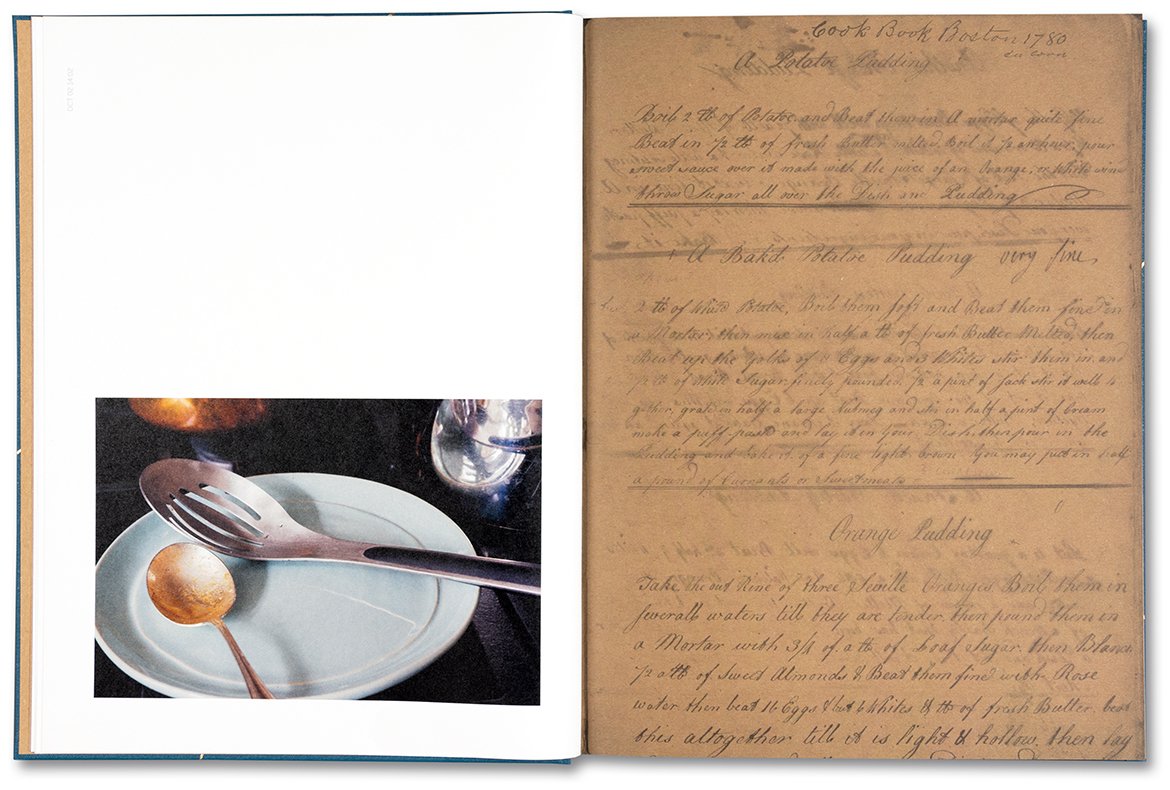 OCT 02 14:02
Cook Book Boston 1780
A Potatoe Pudding
Boil 2 lb of Potatoe and Beat them in A mortar quite fine
Beat in 1/2 lb of fresh Butter melted, Boil it 1/2 an hour, pour
sweet sauce over it made with the juice of an Orange, or White wine
throw Sugar all over the Dish Pudding
A Bak'd Potatoe Pudding very fine
2 lb of White Potatoe, Boil them soft and Beat them fine in
a Mortar, then mix in half a lb of fresh Butter Melted, then
Beat up the yolks of Eggs and 3 Whites stir them in and
1/2 lb of White Sugar finely pounded, 1/2 a pint of Sack stir it well to
gether, grate in half a large Nutmeg and stir in half a pint of Cream
make a puff-paste and lay it in Your Dish, then pour in the
Pudding and bake it of a fine light brown You may put in half
a pound of Currants or Sweetmeats
Orange Pudding
Take the out Rine of three Seville Oranges Boil them in
severall waters till they are tender, then pound them in
a Mortar with 3/4 of a lb of Loaf Sugar, then Blanch
1/2 a lb of Sweet Almonds & Beat them fine with Rose
water then beat 16 Eggs & but 6 Whites & lb of fresh Butter, beat
this altogether till it is light & hollow, then lay